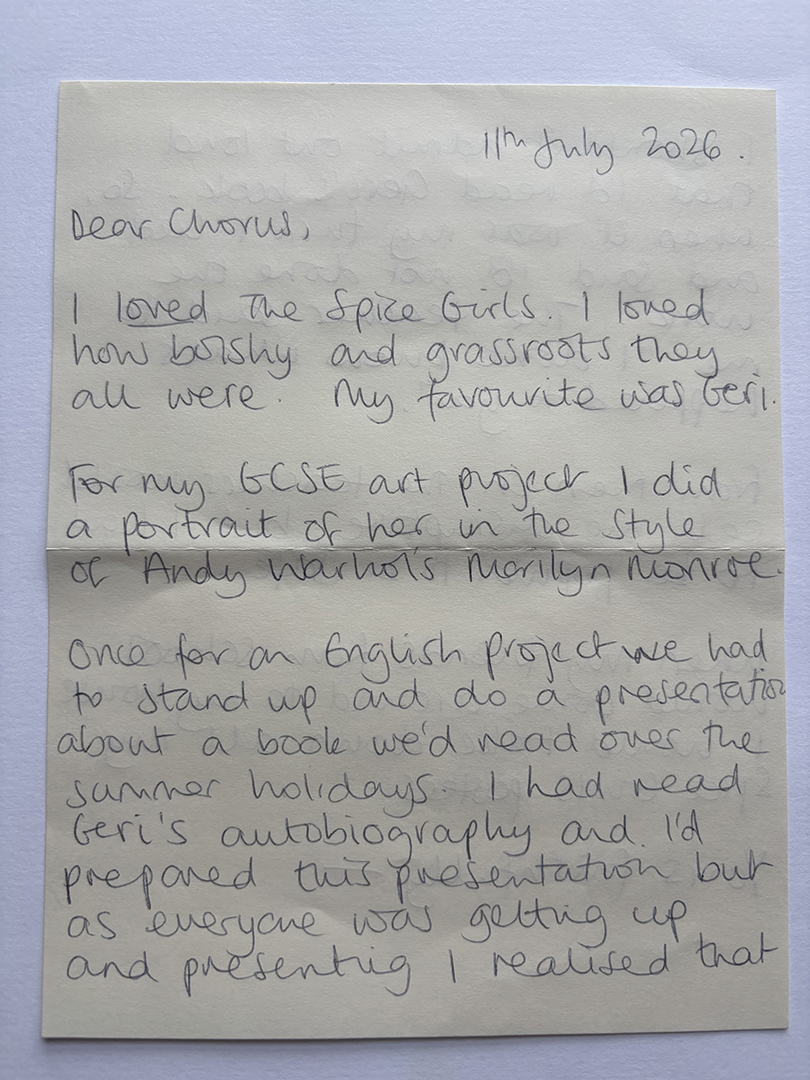 11th July 2026.
Dear Chorus,
I loved The Spice Girls. I loved
how bolshy and grassroots they
all were. My favourite was Geri.
For my GCSE art project I did
a portrait of her in the style
of Andy Warhol's Marilyn Monroe.
Once for an English project we had
to stand up and do a presentation
about a book we'd read over the
summer holidays. I had read
Geri's autobiography and I'd
prepared this presentation but
as everyone was getting up
and presenting I realised that